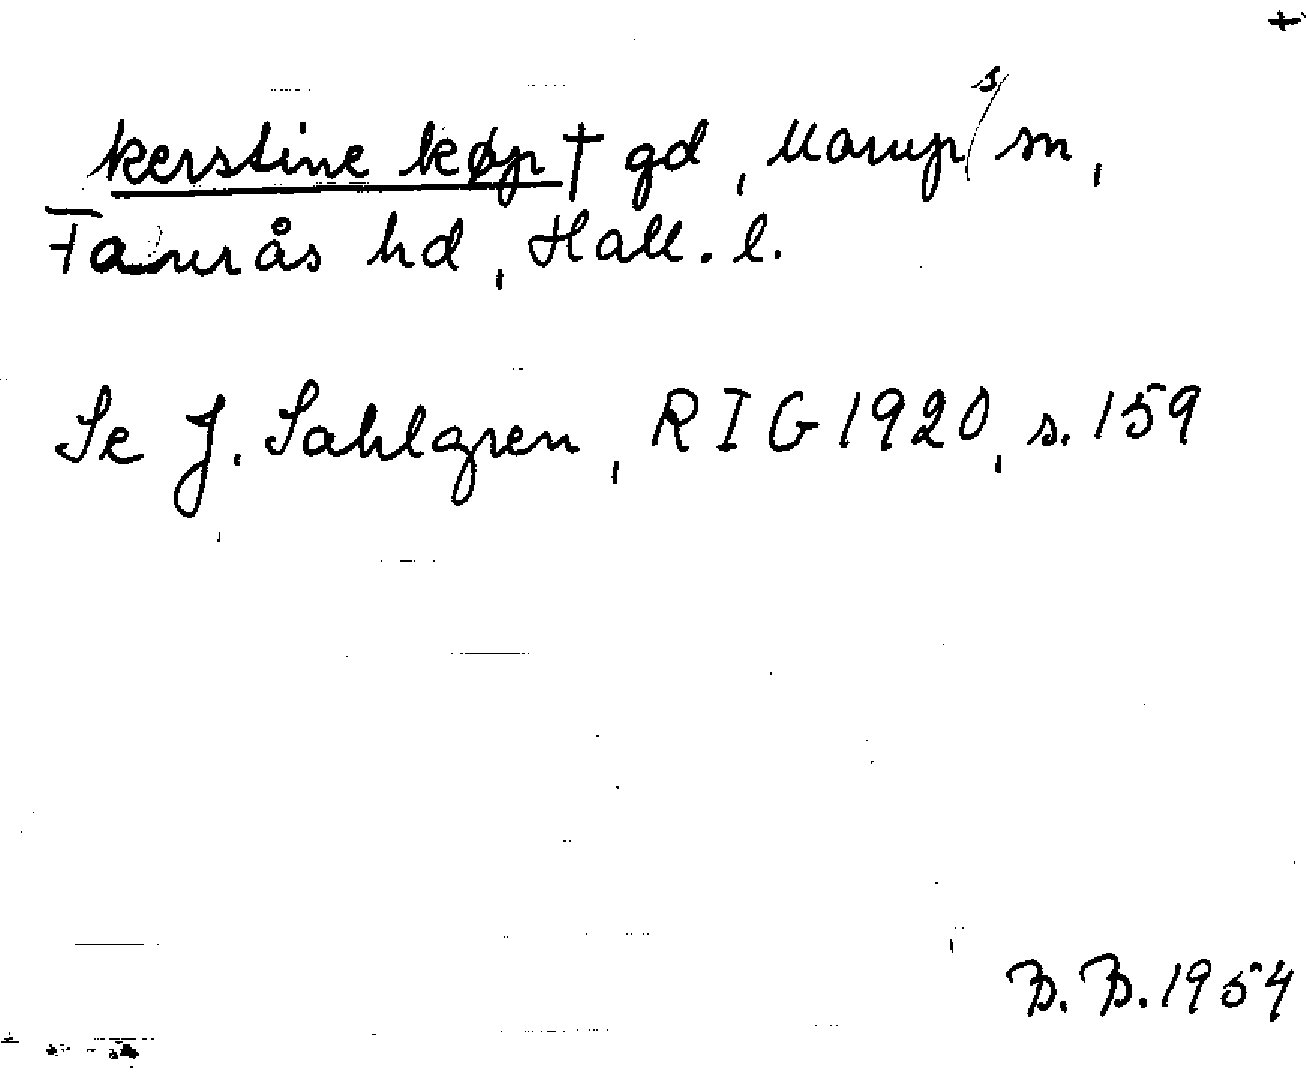 +
kerstine køp † gd, Marups sn,
Faurås hd, Hall. l.
Se J. Sahlgren, RIG 1920, s. 159
B. B. 1954